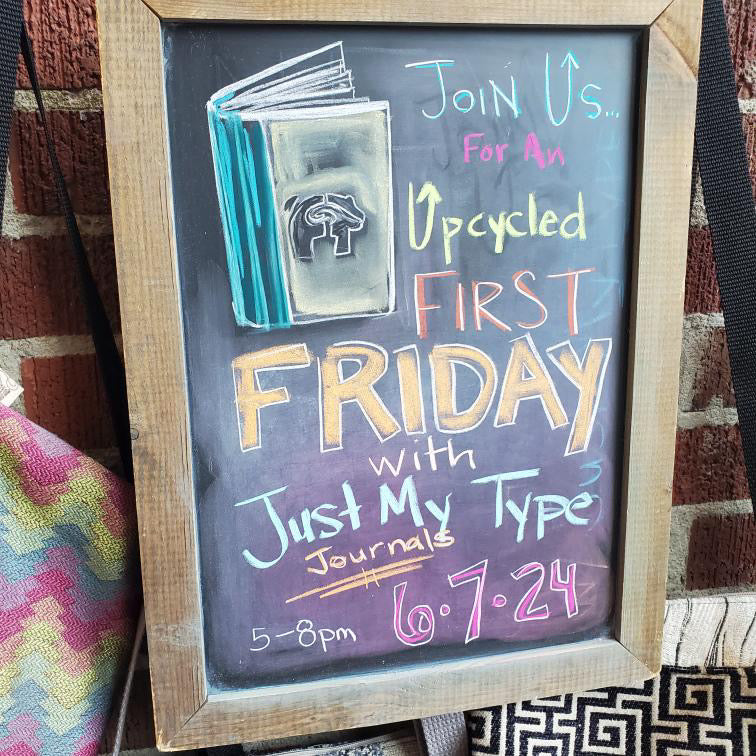 Join Us...
For An
Upcycled
FIRST
FRIDAY
with
Just My Type
Journals
6.7.24
5-8pm